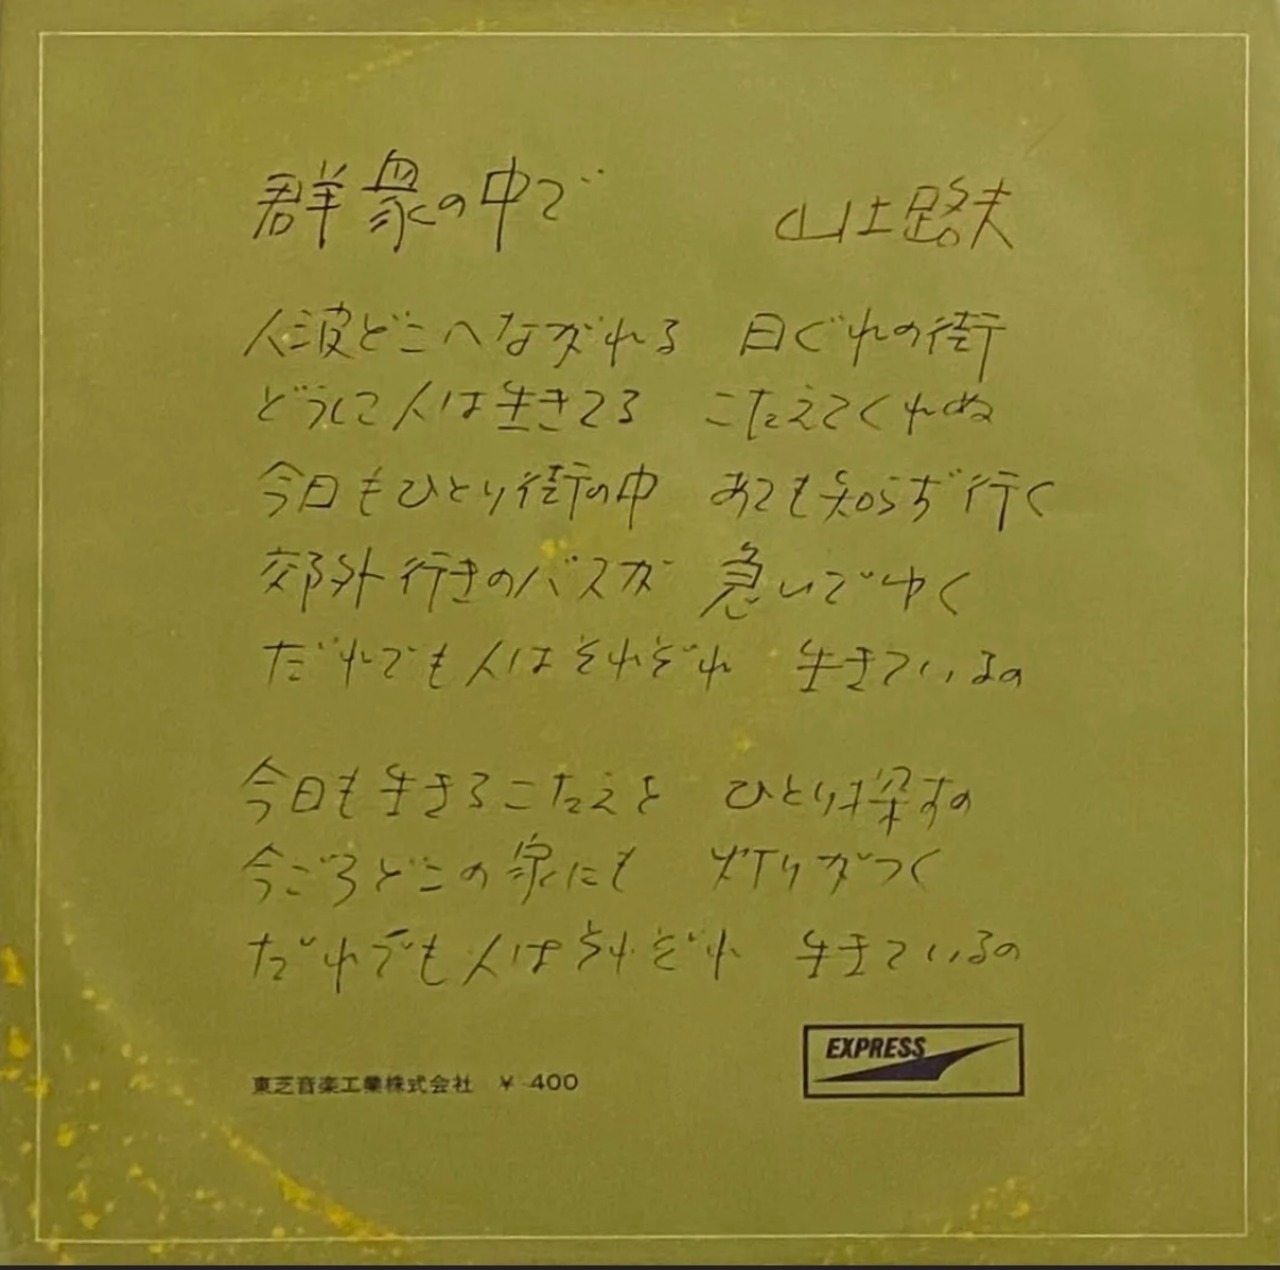 群衆の中で　山上路夫
人波どこへながれる　日ぐれの街
どうして人は生きてる　こたえてくれぬ
今日もひとり街の中　あても知らず行く
郊外行きのバスが　急いでゆく
だれでも人はそれぞれ　生きているの
今日も生きるこたえを　ひとり探すの
今ごろどこの家にも　灯りがつく
だれでも人はそれぞれ　生きているの
EXPRESS
東芝音楽工業株式会社　¥400